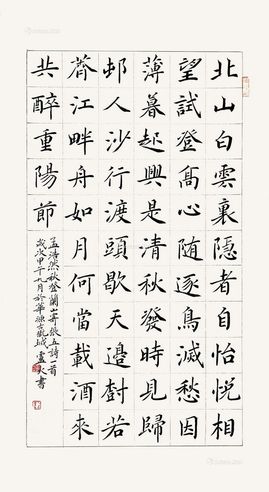 北山白雲裏隱者自怡悅相
望試登高心随逐鳥滅愁因
薄暮起興是清秋發時見歸
邨人沙行渡頭歇天邊樹若
薺江畔舟如月何當載酒來
共醉重陽節
孟浩然秋登蘭山寄張五詩一首
歲次甲午九月於
書